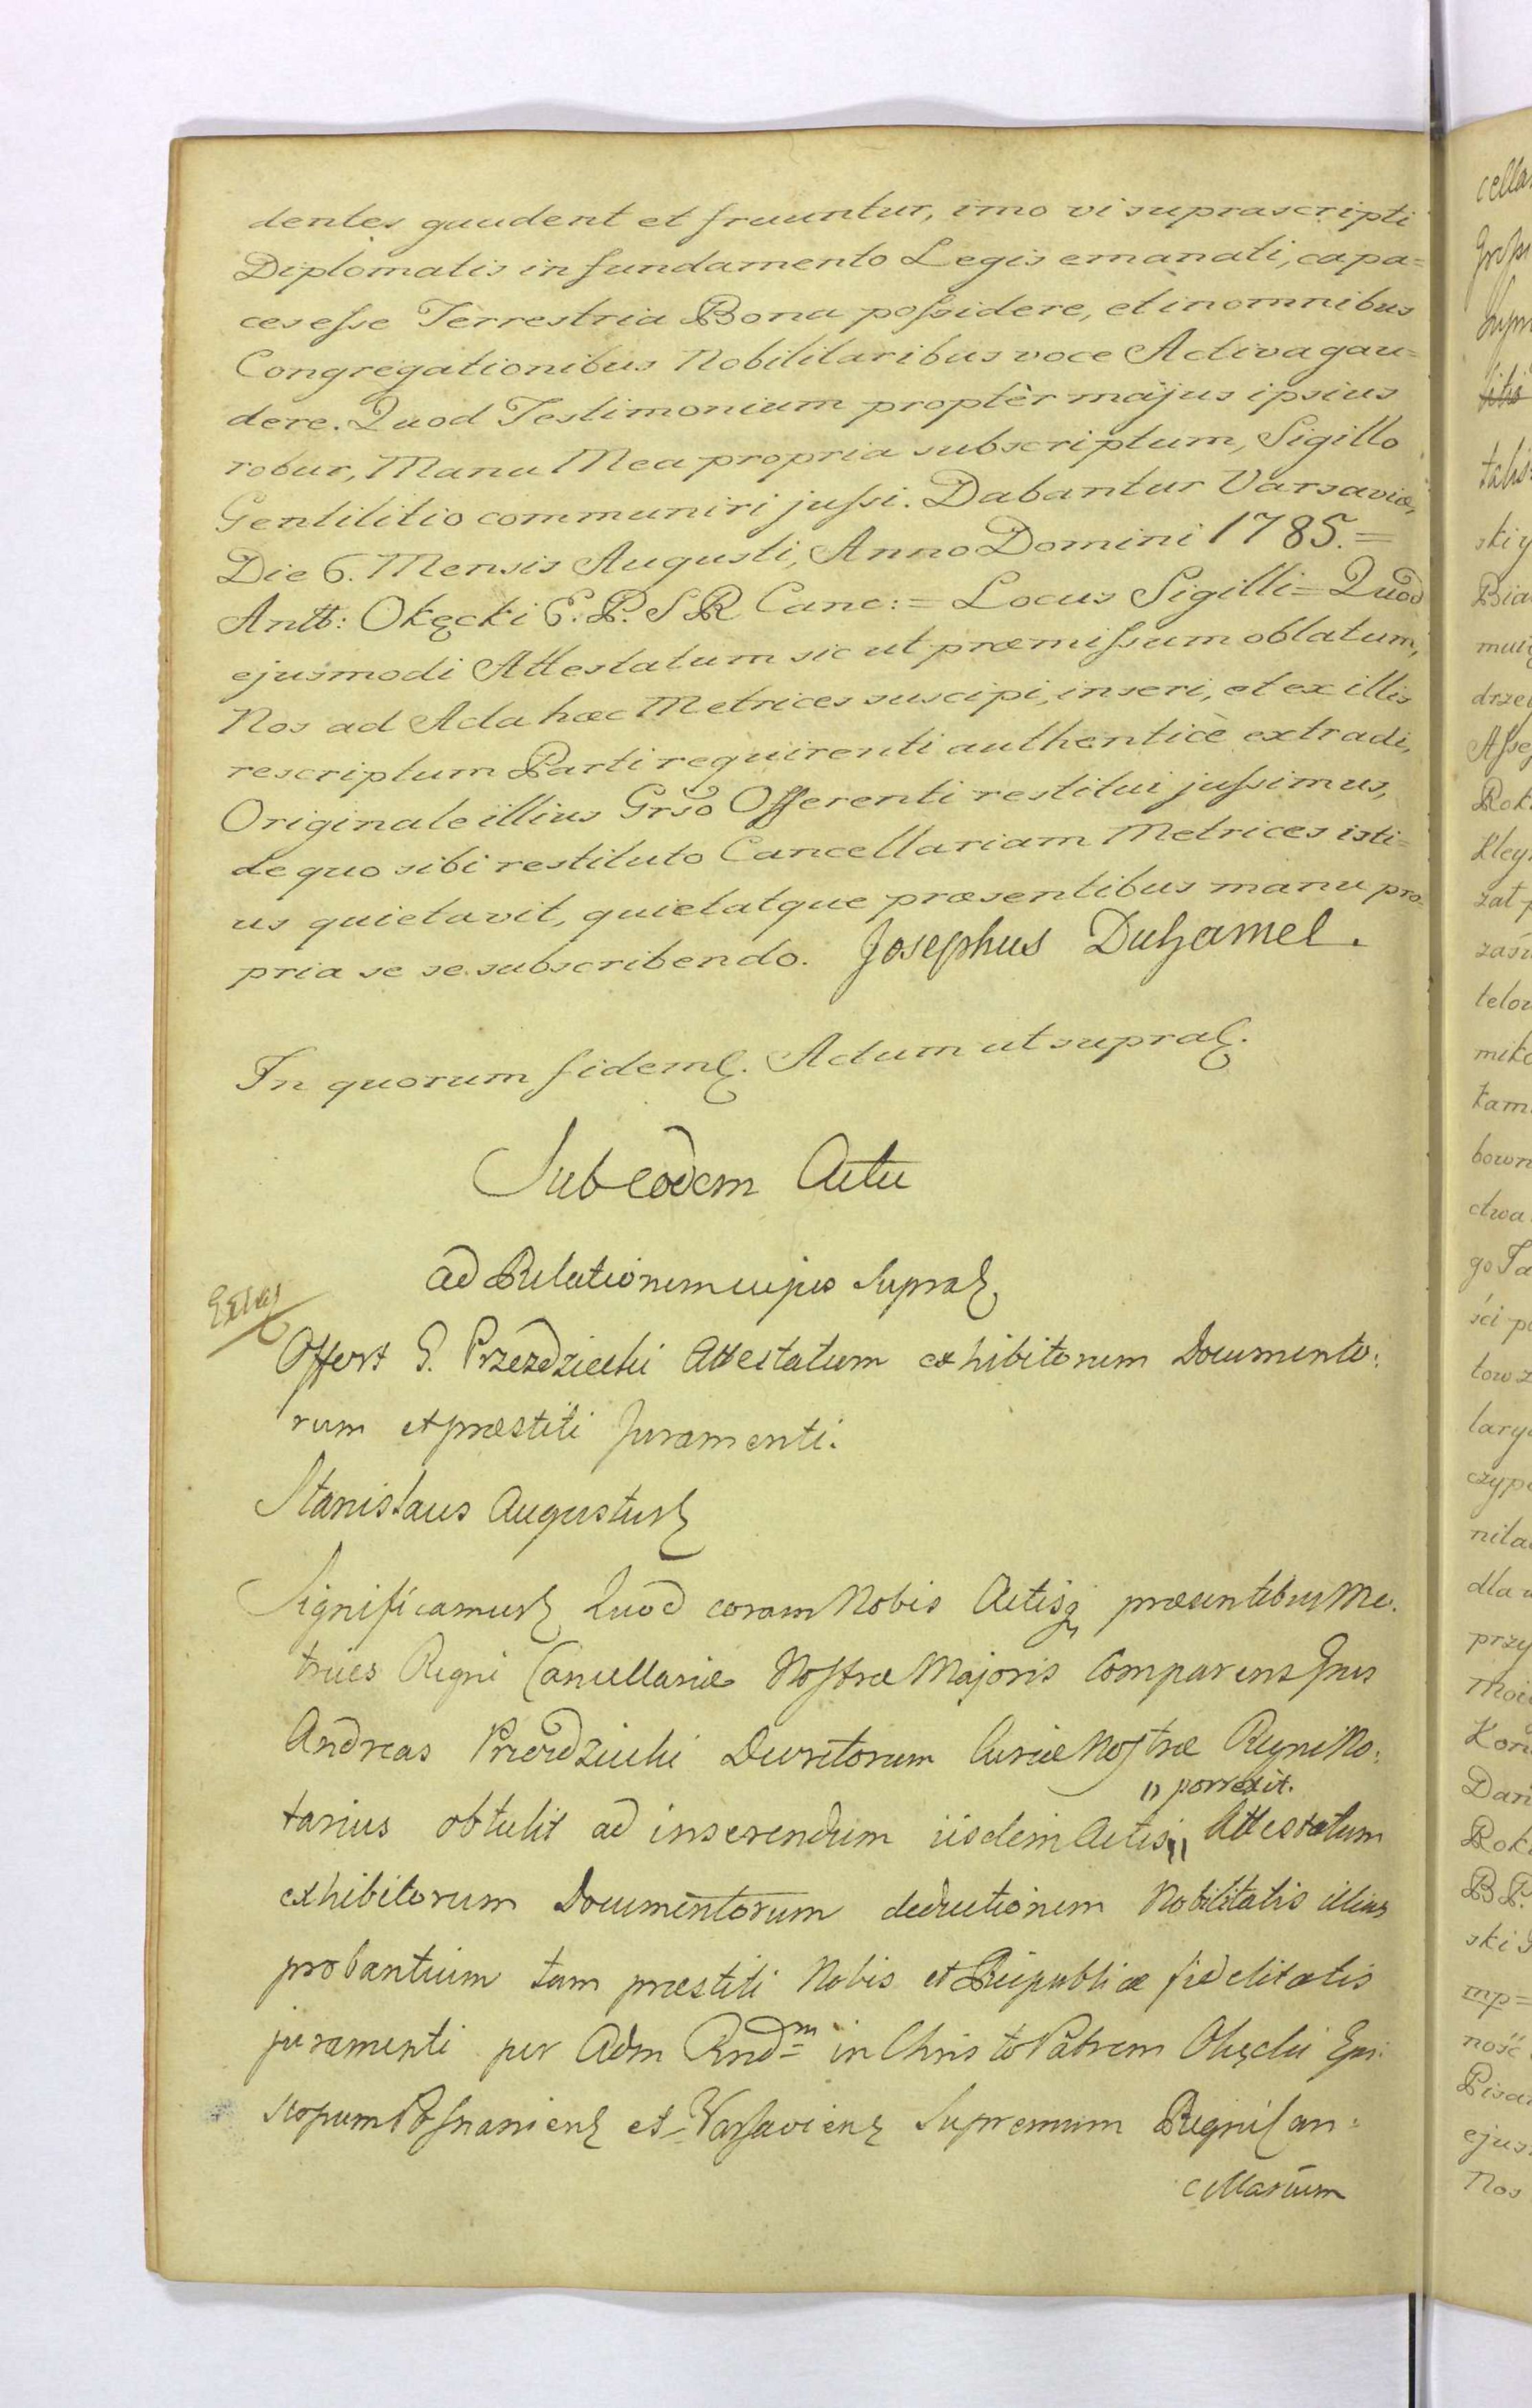 dentes gaudent et fruuntur, imo vi suprascripti
Diplomatis in fundamento Legis emanati, capa=
ces esse Terrestria Bona possidere, et in omnibus
Congregationibus Nobilitaribus voce Activa gau=
dere. Quod Testimonium proptèr majus ipsius
robur, Manu Mea propria subscriptum, Sigillo
Gentilitio communiri jussi. Dabantur Varsaviæ,
Die 6. Mensis Augusti, Anno Domini 1785.=
Antt: Okęcki E. P. S R Canc:= Locus Sigilli= Quod
ejusmodi Attestatum sic ut præmissum oblatum,
Nos ad Acta hæc Metrices suscipi, inseri, et ex illis
rescriptum Parti requirenti authenticè extradi,
Originale illius Grso Offerenti restitui jussimus,
de quo sibi restituto Cancellariam Metrices isti=
us quietavit, quietatque præsentibus manu pro=
pria se se subscribendo. Josephus Duhamel.
In quorum fidem. Actum ut supra.
Sub eodem Actu
ad Relationem cujus supra
Offert G. Przezdziecki Attestatum exhibitorum Documento:
rum et præstiti Juramenti.
Stanislaus Augustus
Significamus Quod coram Nobis Actisq præsentibus Me:
trices Regni Cancellariæ Nostræ Majoris Comparens Grus
Andreas Przezdziecki Decretorum Curiæ Nostræ Regni No:
" porrexit.
tarius obtulit ad inserendum iisdem Actis " Attestatum
exhibitorum Documentorum deductionem Nobilitatis illius
probantium tam præstiti Nobis et Reipublicæ fidelitatis
juramenti per Adm Rndm in Christo Patrem Okęcki Epi:
scopum Posnaniens et Varsaviens Supremum Regni Can:
cellarium
cella
talis
ski y
Bia
drze
Asse
Rok
zat p
telow
mik
kam
bown
ctwa
go Ta
ści p
tow z
lary
czyp
nita
dla
przy
Kor
Dan
Rok
B P.
ski
mp=
ność
Pisa
ejus
Nos